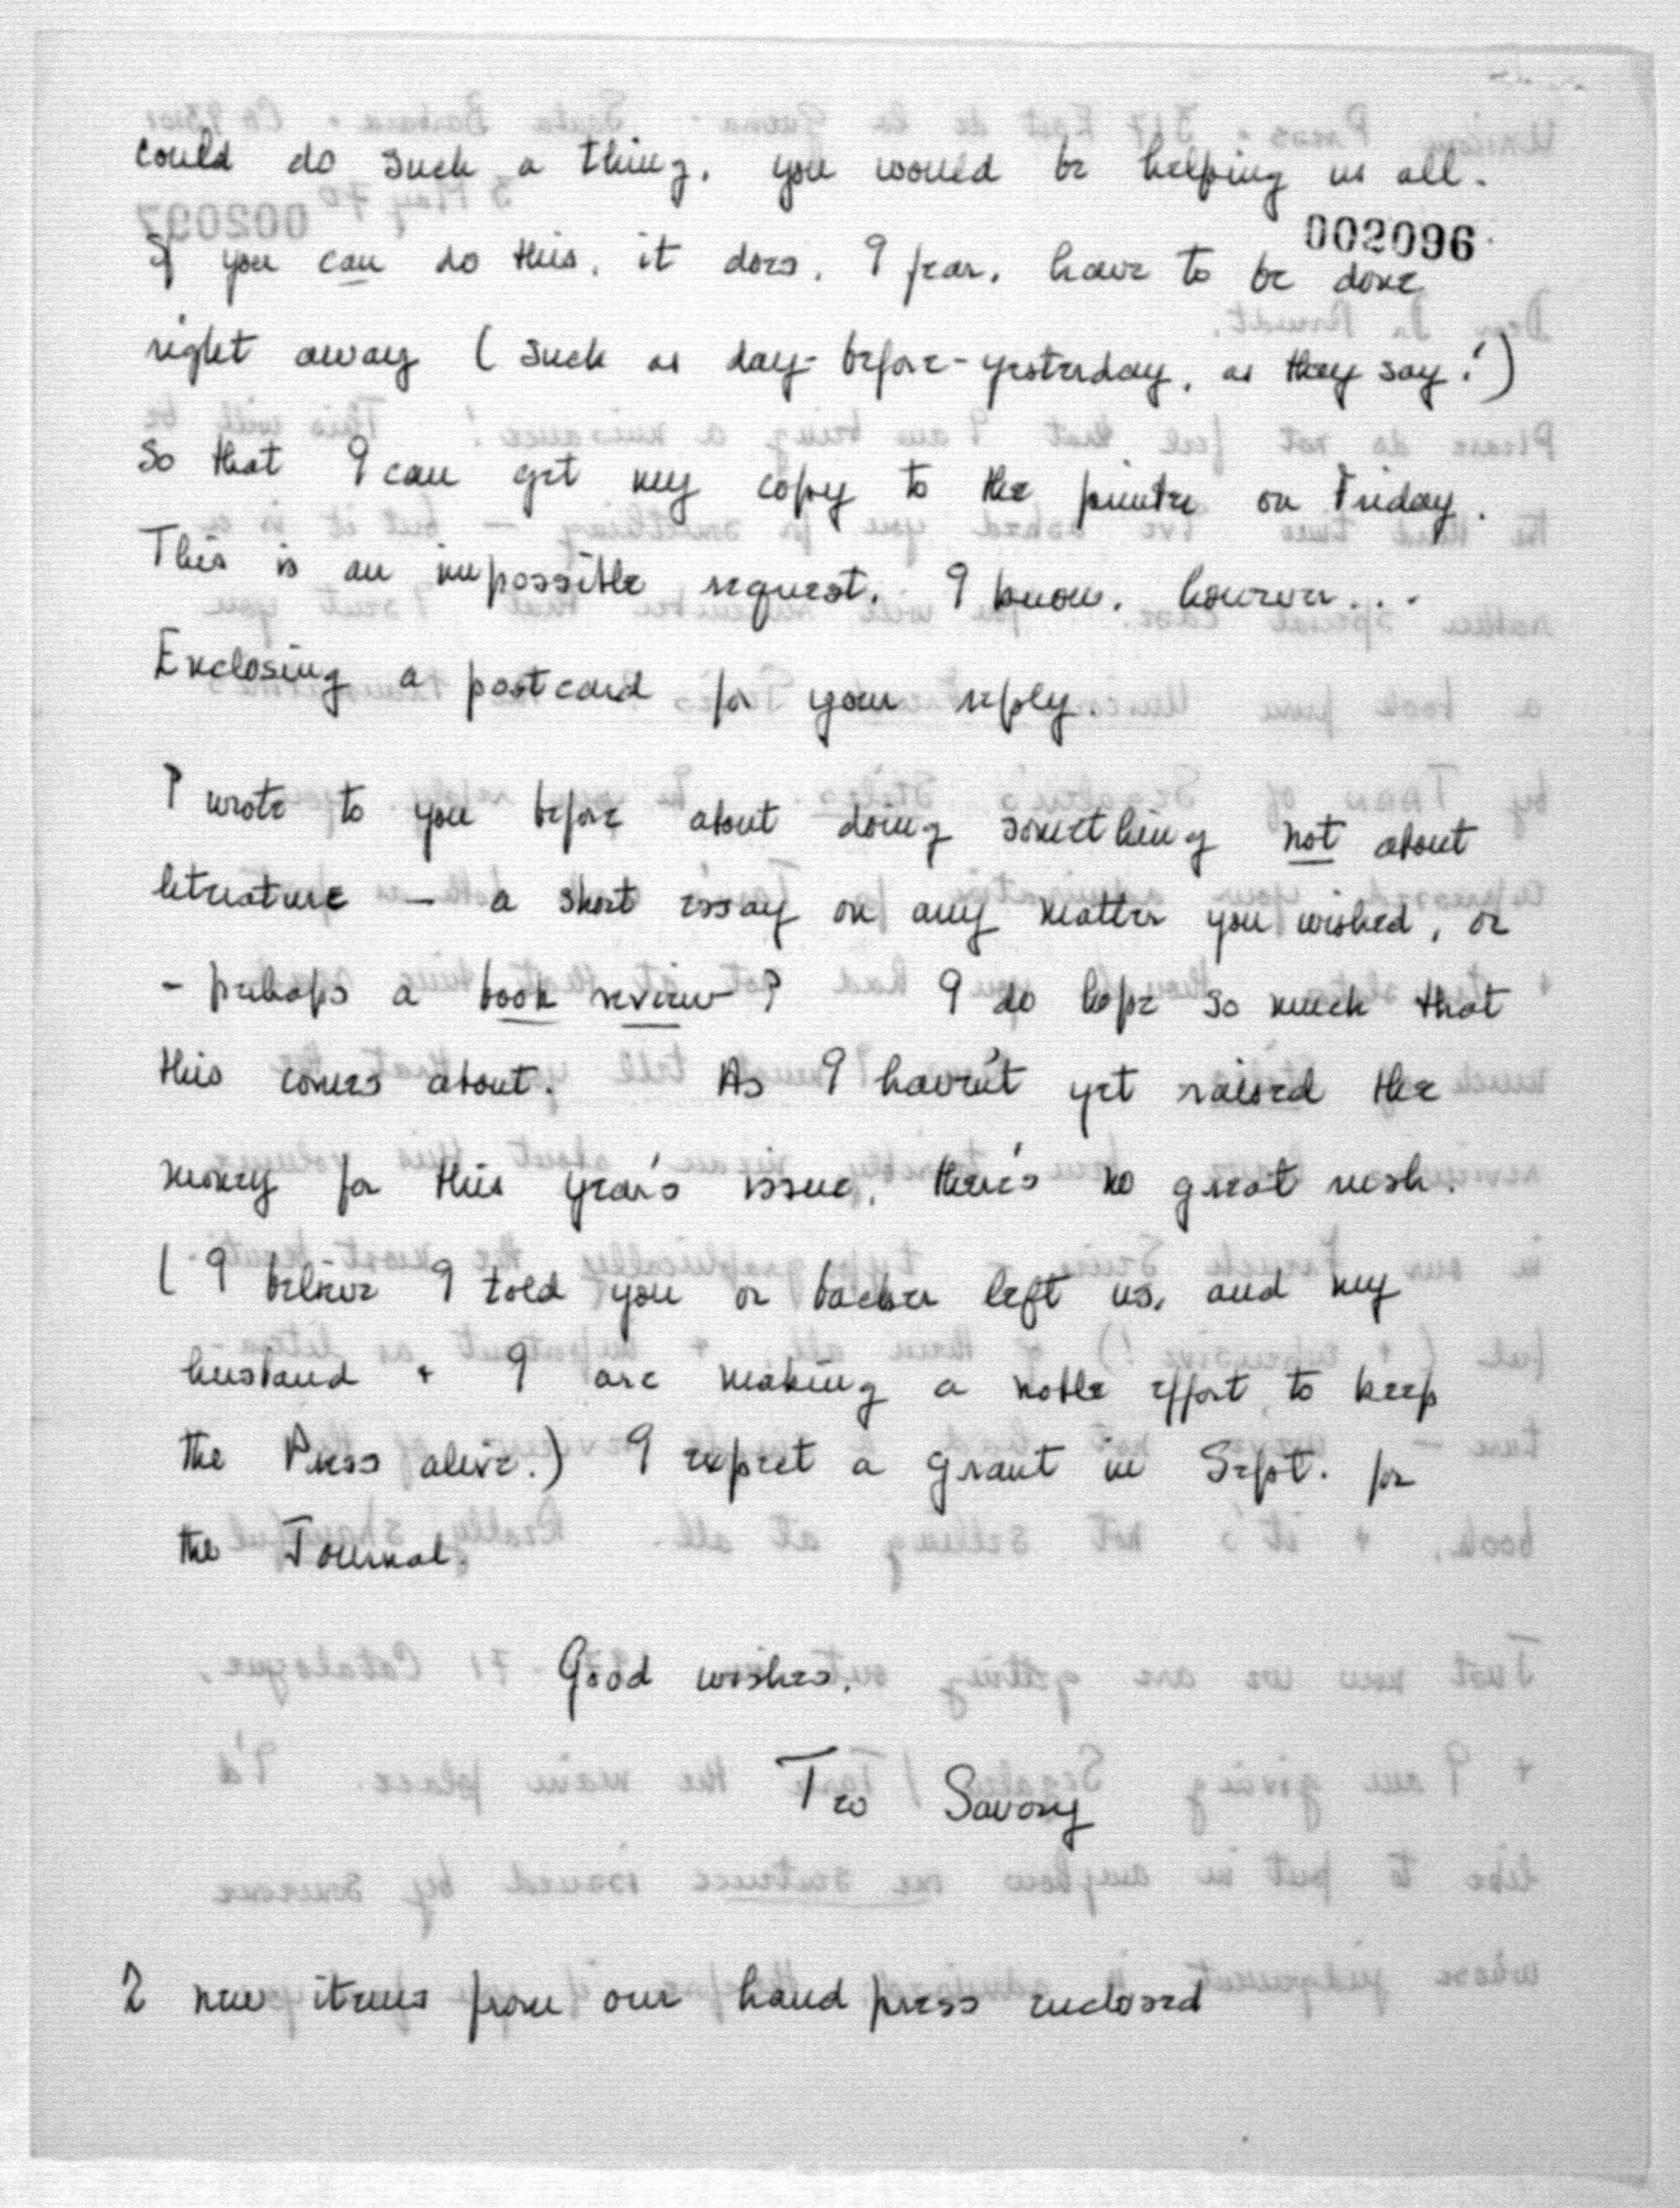 could do such a thing, you would be helping us all.
002096
If you can do this, it does, I fear, have to be done
right away (such as day-before-yesterday, as they say!)
so that I can get my copy to the printer on Friday.
This is an impossible request, I know, however...
Enclosing a postcard for your reply.
I wrote to you before about doing something not about
literature — a short essay on any matter you wished, or
- perhaps a book review? I do hope so much that
this comes about. As I haven't yet raised the
money for this year's issue, there's no great rush.
(I believe I told you or backer left us, and my
husband + I are making a noble effort to keep
the Press alive.) I expect a grant in Sept. for
the Journal.
Good wishes,
Teo Savory
2 new items from our hand press enclosed